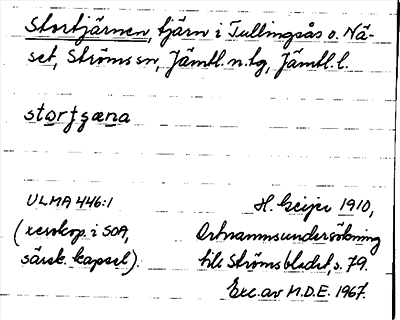 Stortjärnen, tjärn i Tullingsås o. Nä-
set, Ströms sn, Jämtl. n. tg, Jämtl. l.
stortjæna
ULMA 446:1
H. Geijer 1910,
(xeroskop. i SOA,
Ortnamnsundersökning
särsk. kapsel).
till Strömsbladet, s. 79.
Exc. av M.D.E. 1967.